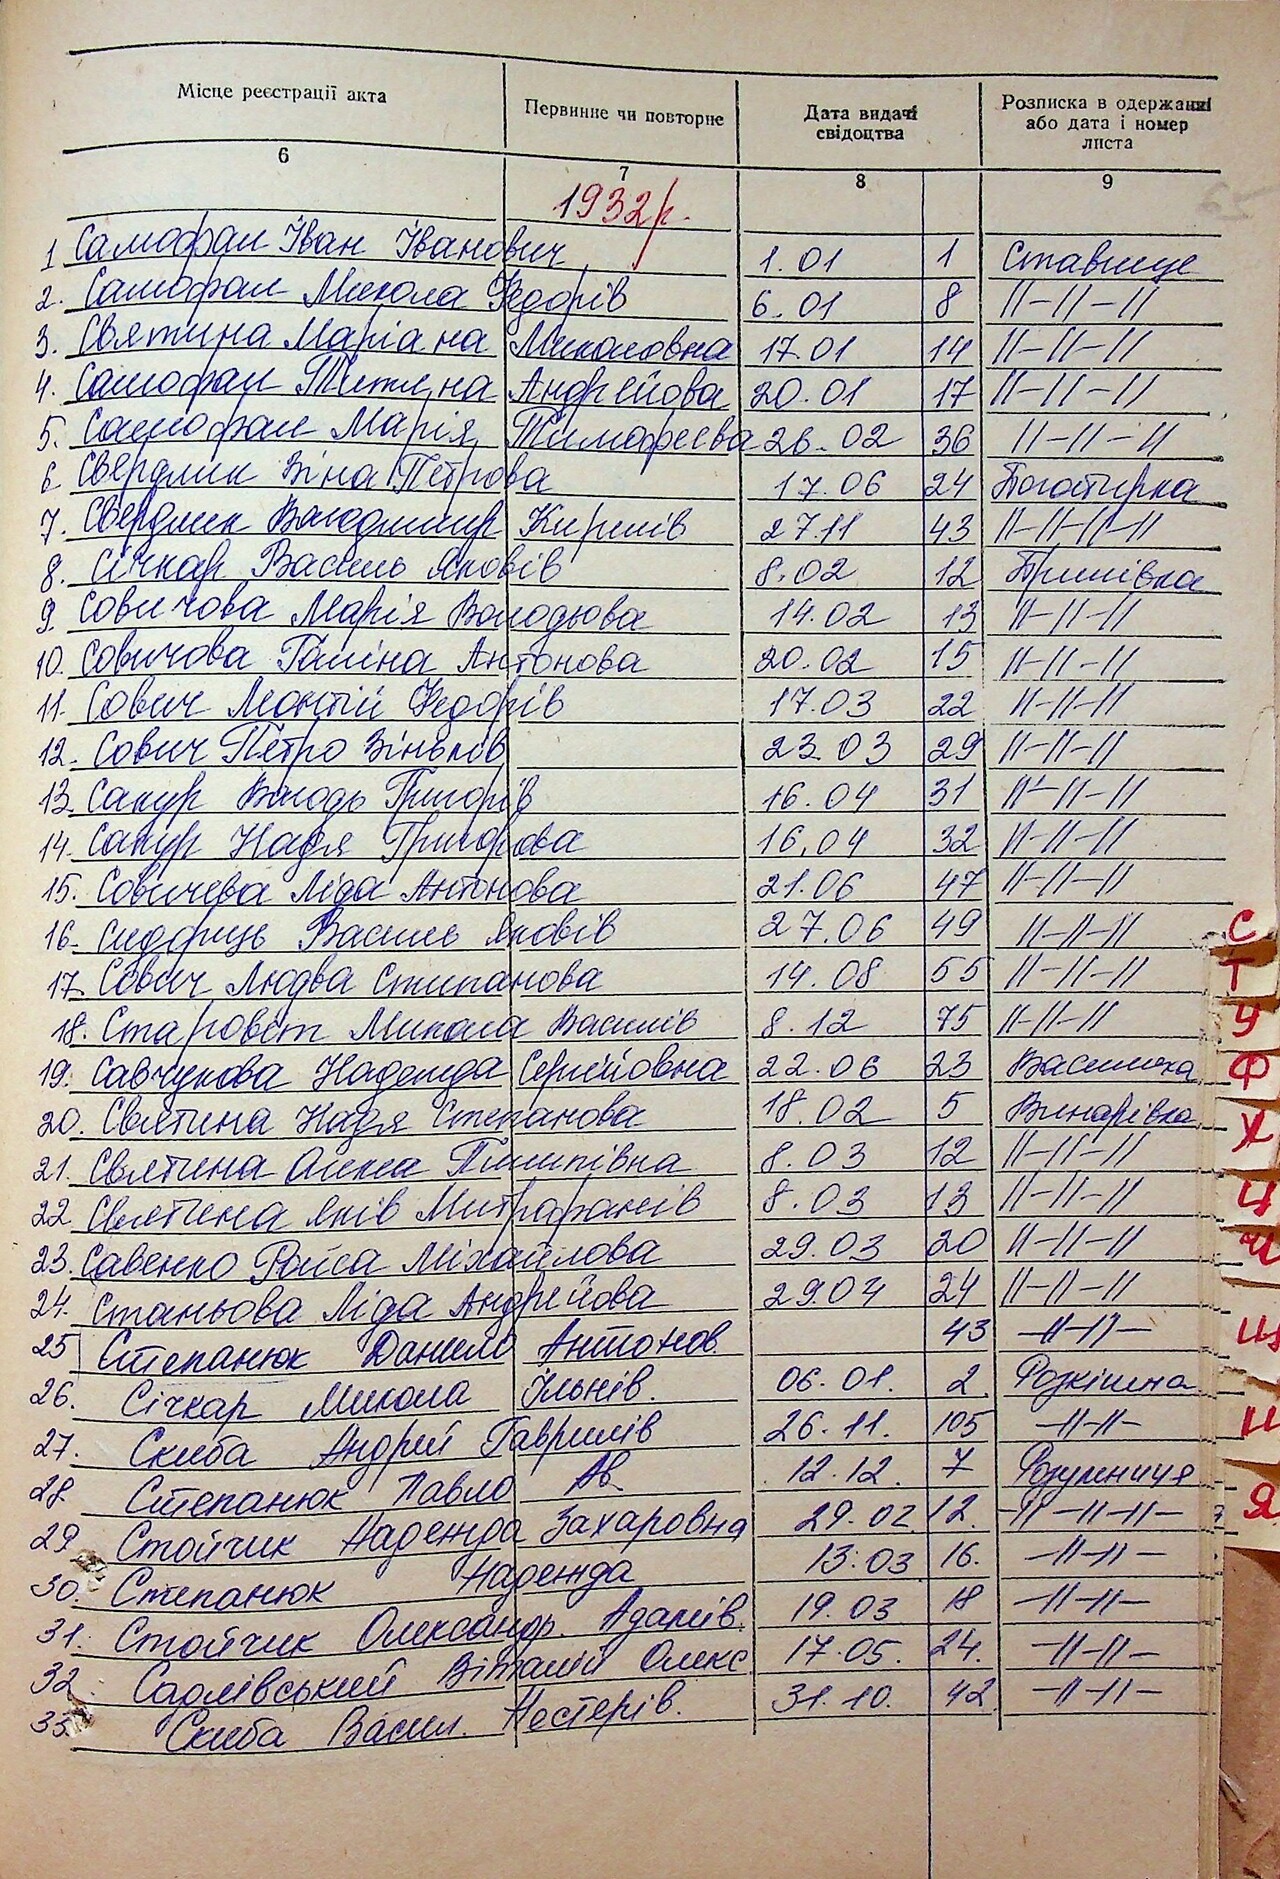 Місце реєстрації акта
Первинне чи повторне
Дата видачі свідоцтва
Розписка в одержанні або дата і номер листа
6 7 8 9
1932р.
1 Самофал Іван Іванович 1.01 1 Ставище
2. Самофал Микола Федорів 6.01 8 II–II–II
3. Святина Маріана Миколовна 17.01 14 II–II–II
4. Самофал Титяна Андрейова 20.01 17 II–II–II
5. Самофал Марія Тимофеєва 26.02 36 II–II–II
6 Свердлик Зіна Петрова 17.06 24 Богатирка
7. Свердлик Володимир Кирилів 27 11 43 II–II–II–II
8. Січкар Василь Яковів 8.02 12 Гришівка
9. Совичова Марія Володьова 14.02 13 II–II–II
10. Совичова Галіна Антонова 20.02 15 II–II–II
11. Сович Леонтій Федорів 17.03 22 II–II–II
12. Сович Петро Зіньків 23.03 29 II–II–II
13. Сакур Володь Григорів 16.04 31 II–II–II
14. Сакур Надя Григорова 16.04 32 II–II–II
15. Совичева Ліда Антонова 21.06 47 II–II–II
16. Сидорець Василь Яковів 27.06 49 II–II–II
17. Сович Людва Степанова 14.08 55 II–II–II
18. Старовєт Микола Василів 8.12 75 II–II–II
19. Савчукова Надежда Сергійовна 22.06 23 Василиха
20. Святина Надя Степанова 18.02 5 Винарівка
21. Святина Олекса Пилипівна 8.03 12 II–II–II
22. Святина Яків Митрофанів 8.03 13 II–II–II
23. Савенко Раїса Міхайлова 29.03 20 II–II–II
24. Станьова Ліда Андрейова 29.04 24 II–II–II
25 Степанюк Данило Антонов. 43 –II–II–
26. Січкар Микола Ільнів. 06.01. 2 Розкішна
27. Скиба Андрей Гаврилів 26.11. 105 –II–II–
28 Степанюк Павло Ав. 12.12. 7 Розумниця
29 Стойчик Надежда Захаровна 29.02. 12. –II–II–II–
30. Степанюк Надежда 13.03 16. –II–II–
31. Стойчик Олександр. Адамів. 19.03 18 –II–II–
32 Садлівський Віталій Олекс 17.05. 24. –II–II–
33. Скиба Васил. Нестерів. 31.10. 42 –II–II–
С
Т
У
Ф
Х
Ц
Ч
Щ
Я